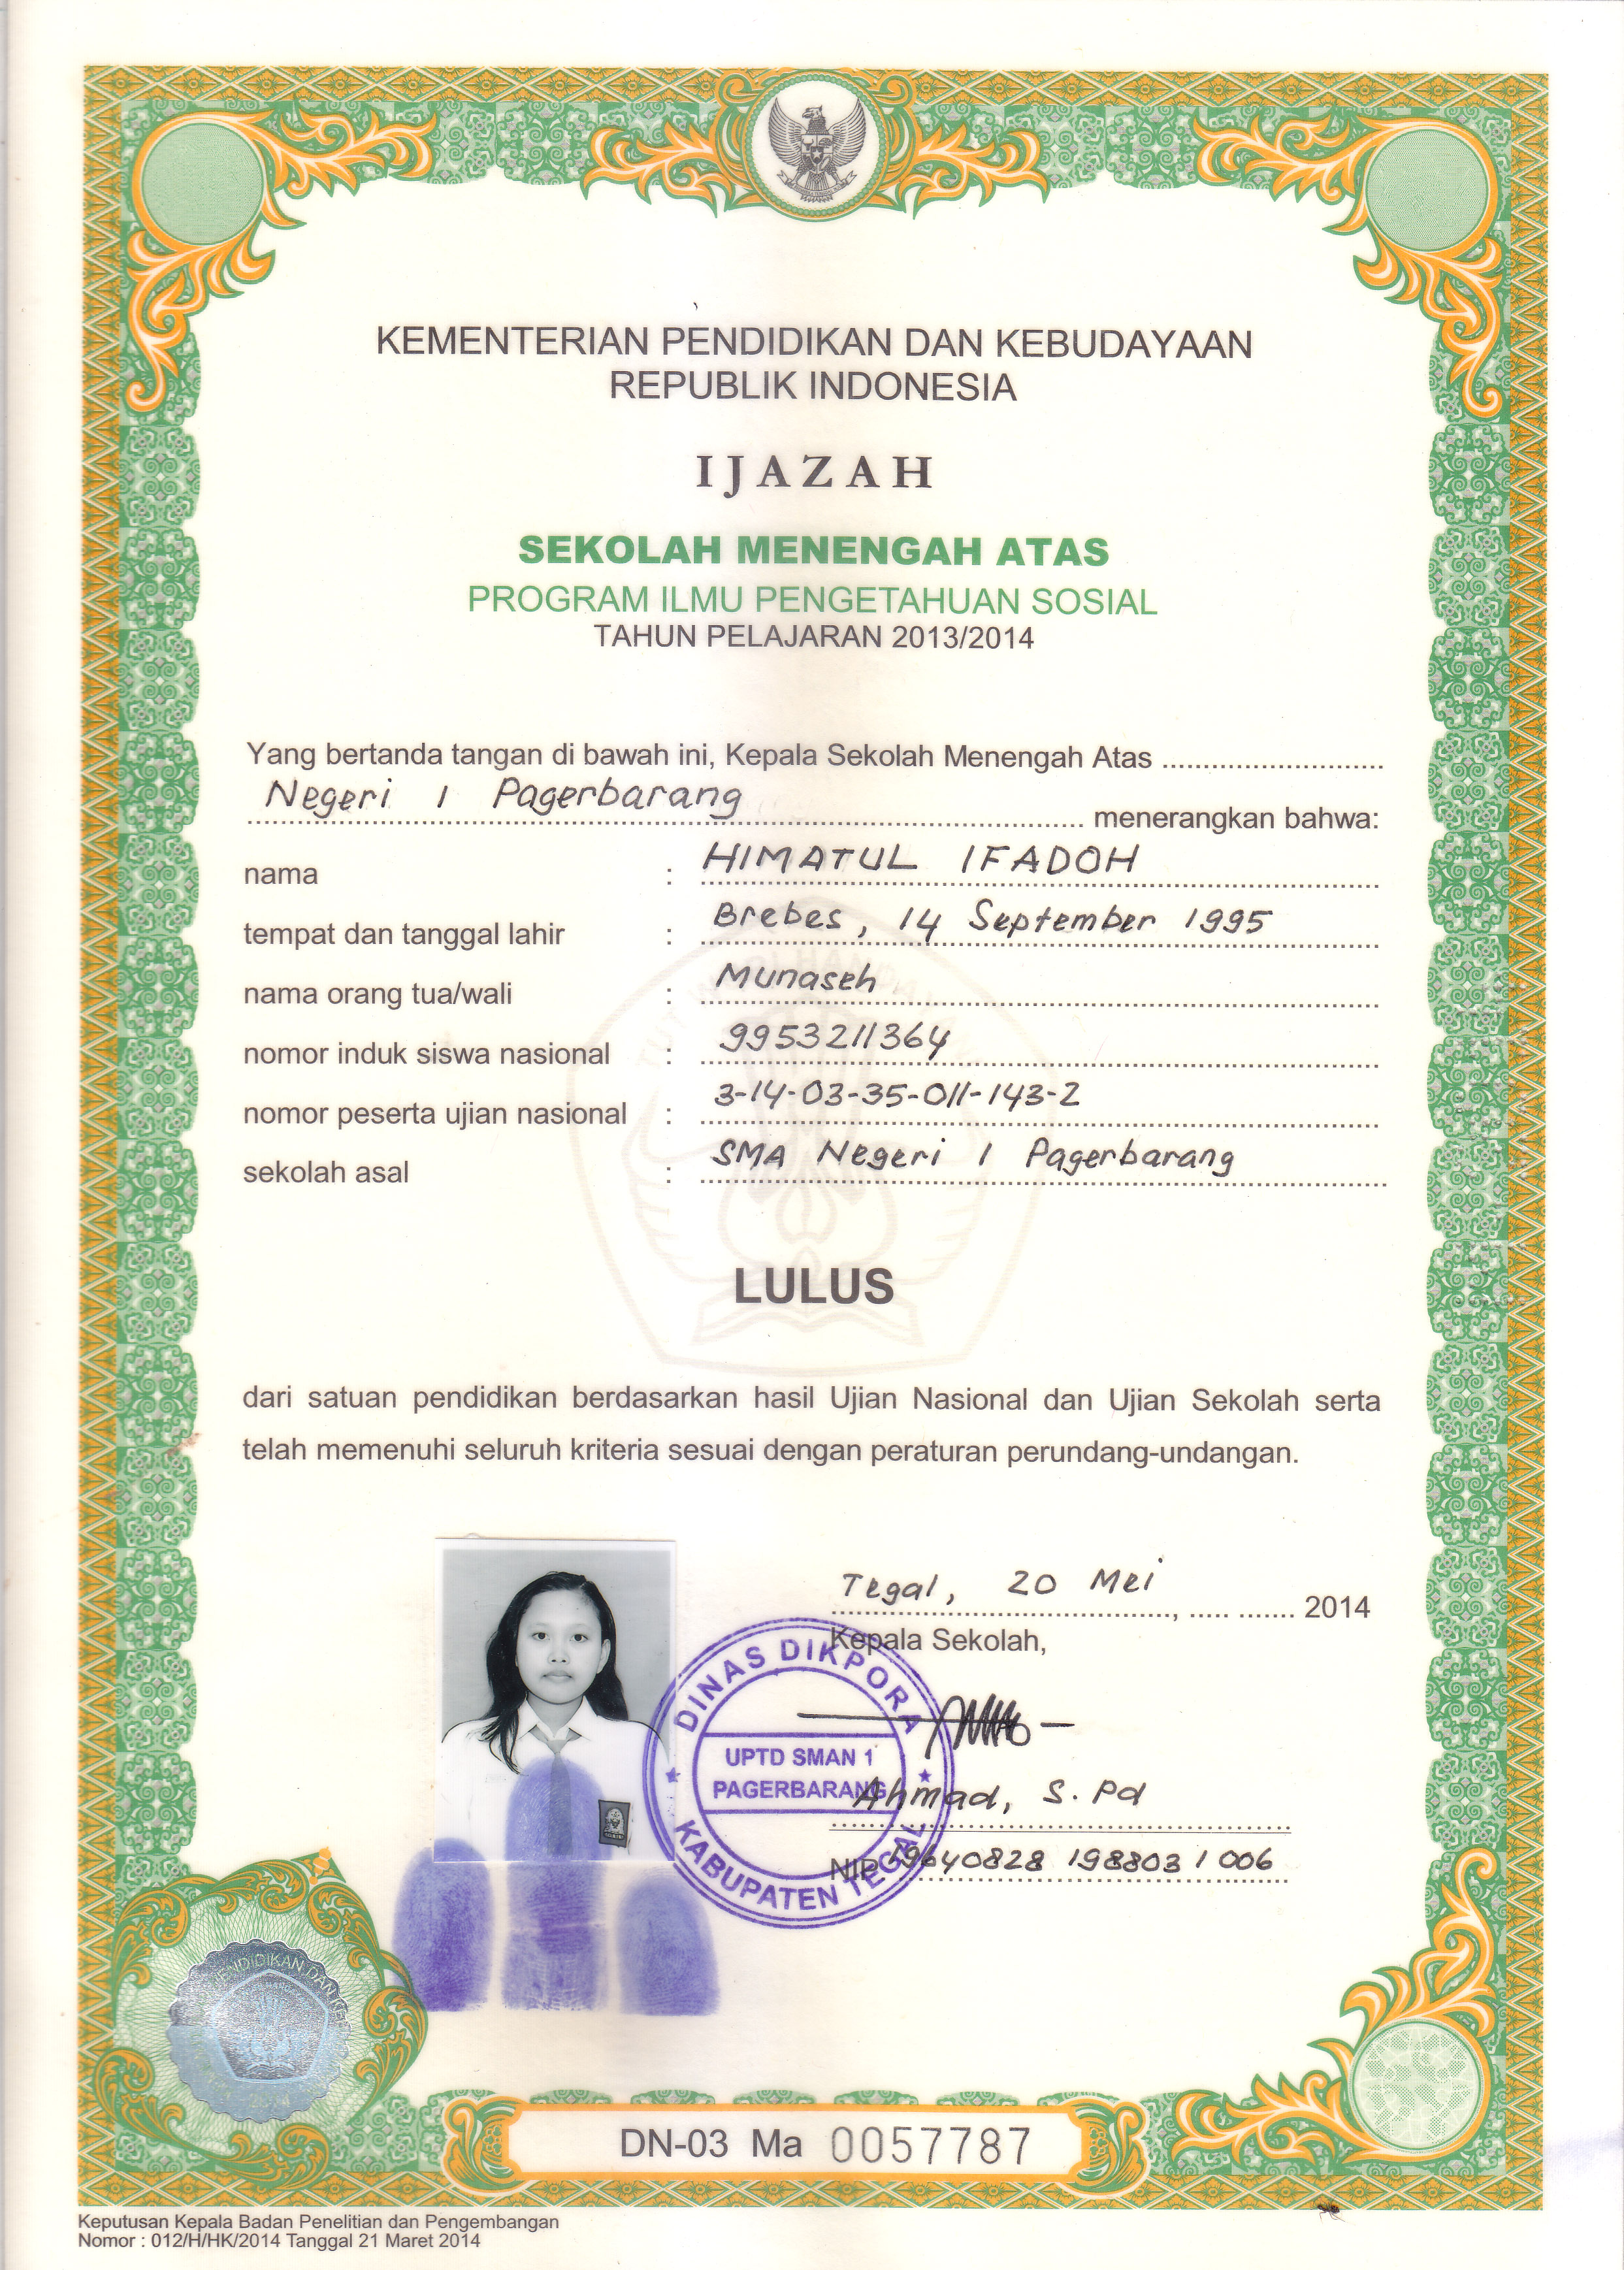 KEMENTERIAN PENDIDIKAN DAN KEBUDAYAAN
REPUBLIK INDONESIA
IJAZAH
SEKOLAH MENENGAH ATAS
PROGRAM ILMU PENGETAHUAN SOSIAL
TAHUN PELAJARAN 2013/2014
Yang bertanda tangan di bawah ini, Kepala Sekolah Menengah Atas
Negeri 1 Pagerbarang menerangkan bahwa:
nama : HIMATUL IFADOH
tempat dan tanggal lahir : Brebes, 14 September 1995
nama orang tua/wali : Munaseh
nomor induk siswa nasional : 9953211364
nomor peserta ujian nasional : 3-14-03-35-011-143-2
sekolah asal : SMA Negeri 1 Pagerbarang
LULUS
dari satuan pendidikan berdasarkan hasil Ujian Nasional dan Ujian Sekolah serta
telah memenuhi seluruh kriteria sesuai dengan peraturan perundang-undangan.
Tegal, 20 Mei 2014
Kepala Sekolah,
DINAS DIKPORA
UPTD SMAN 1
PAGERBARANG
KABUPATEN TEGAL
Ahmad, S.Pd
NIP 19640828 198803 1 006
DN-03 Ma 0057787
Keputusan Kepala Badan Penelitian dan Pengembangan
Nomor : 012/H/HK/2014 Tanggal 21 Maret 2014